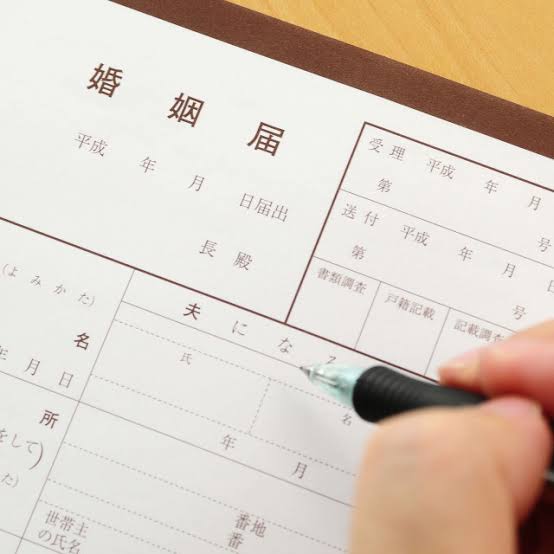 婚姻届
平成 年 月 日届出
長 殿
受理 平成 年 月
第 号
送付 平成 年 月 日
第 号
書類調査 戸籍記載 記載調査
(よみかた)
夫になる
名
氏 名
年 月 日
年 月
所
をして)
た)
番地
番
世帯主
の氏名